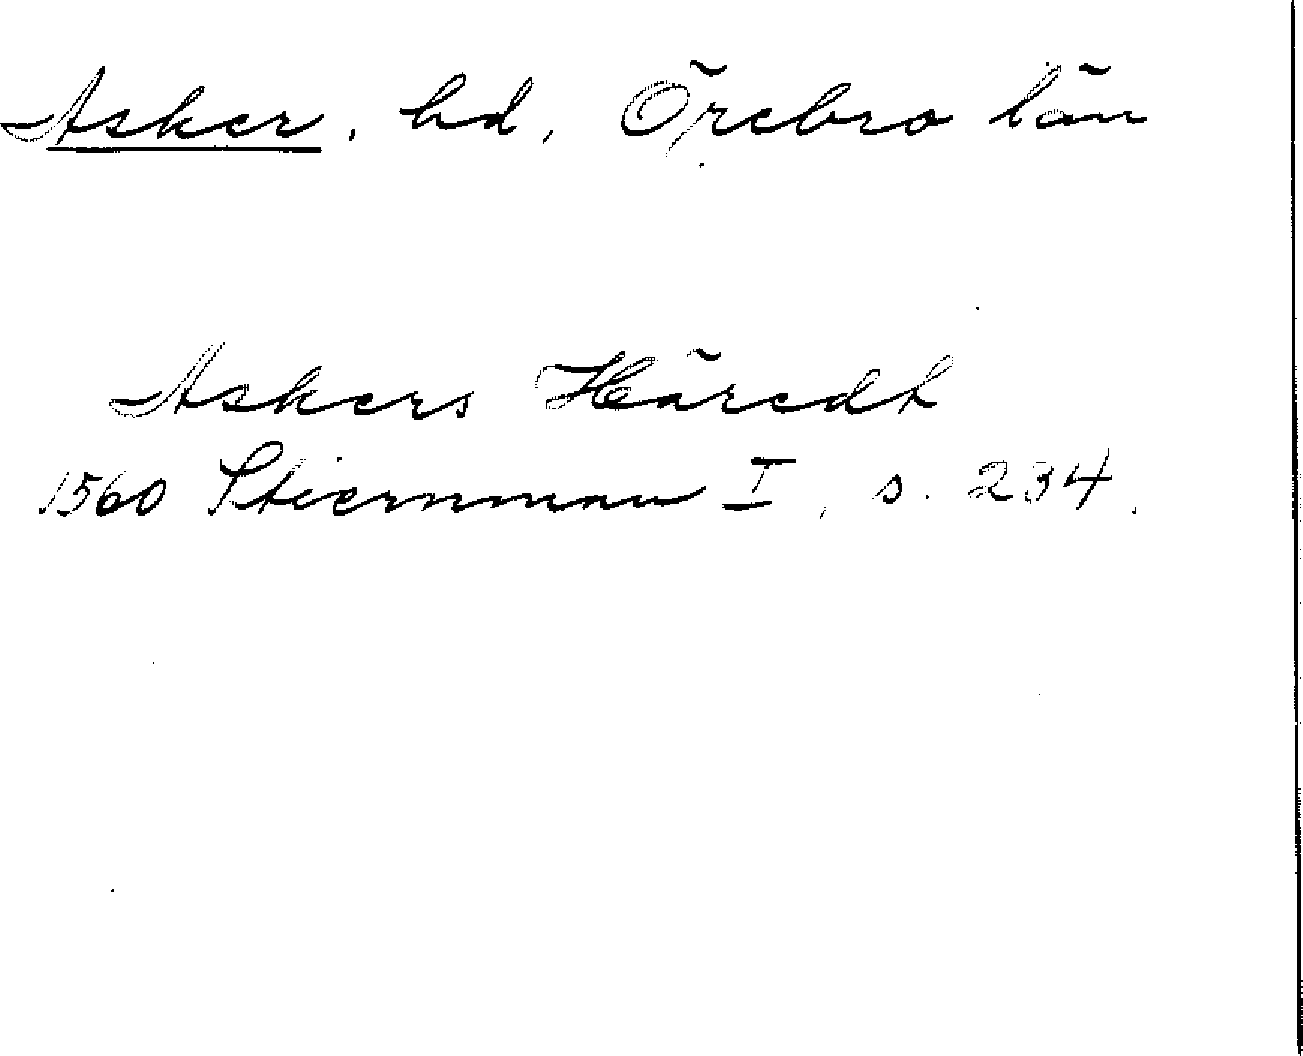 Asker, hd, Örebro län
Askers Häredt
1560 Stiernman I, s. 234.